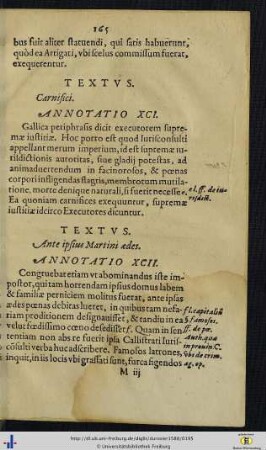 165
bus fuit aliter statuendi, qui satis habuerunt,
quòd ea Artigati, vbi scelus commissum fuerat,
exequerentur.
TEXTVS.
Carnifici.
ANNOTATIO XCI.
Gallica periphrasis dicit executorem supre-
mæ iustitiæ. Hoc porro est quod Iurisconsulti
appellant merum imperium, id est supremæ iu-
risdictionis autoritas, siue gladij potestas, ad
animaduertendum in facinorosos, & pœnas
corpori infligendas flagris, membrorum mutila-
tione, morte denique naturali, si fuerit necesse.
Ea quoniam carnifices exequuntur, supremæ
iustitiæ idcirco Executores dicuntur.
TEXTVS.
Ante ipsius Martini ædes.
ANNOTATIO XCII.
Congruebat etiam vt abominandus iste im-
postor, qui tam horrendam ipsius domus labem
& familiæ perniciem molitus fuerat, ante ipsas
ædes pœnas debitas lueret, in quibus tam nefa-
riam proditionem designauisset, & tandiu in ea
velut fœdissimo cœno desedisset. Quam in sen-
tentiam non abs re fuerit ipsa Callistrati Iuris-
cõsulti verba huc adscribere. Famosos latrones,
inquit, in iis locis vbi grassati sunt, furca figendos
M iij
l. capitaliũ
§. famosos.
ff. de pœ.
http://dl.ub.uni-freiburg.de/diglit/
© Universitätsbibliothek Freiburg